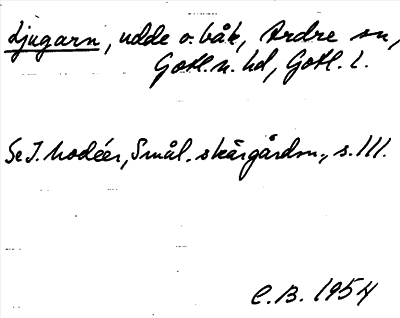 Ljugarn, udde o. båk, Ardre sn,
Gotl. n. hd, Gotl. l.
Se I. Modéer, Smål. skärgårdsn., s. 111.
C. B. 1954